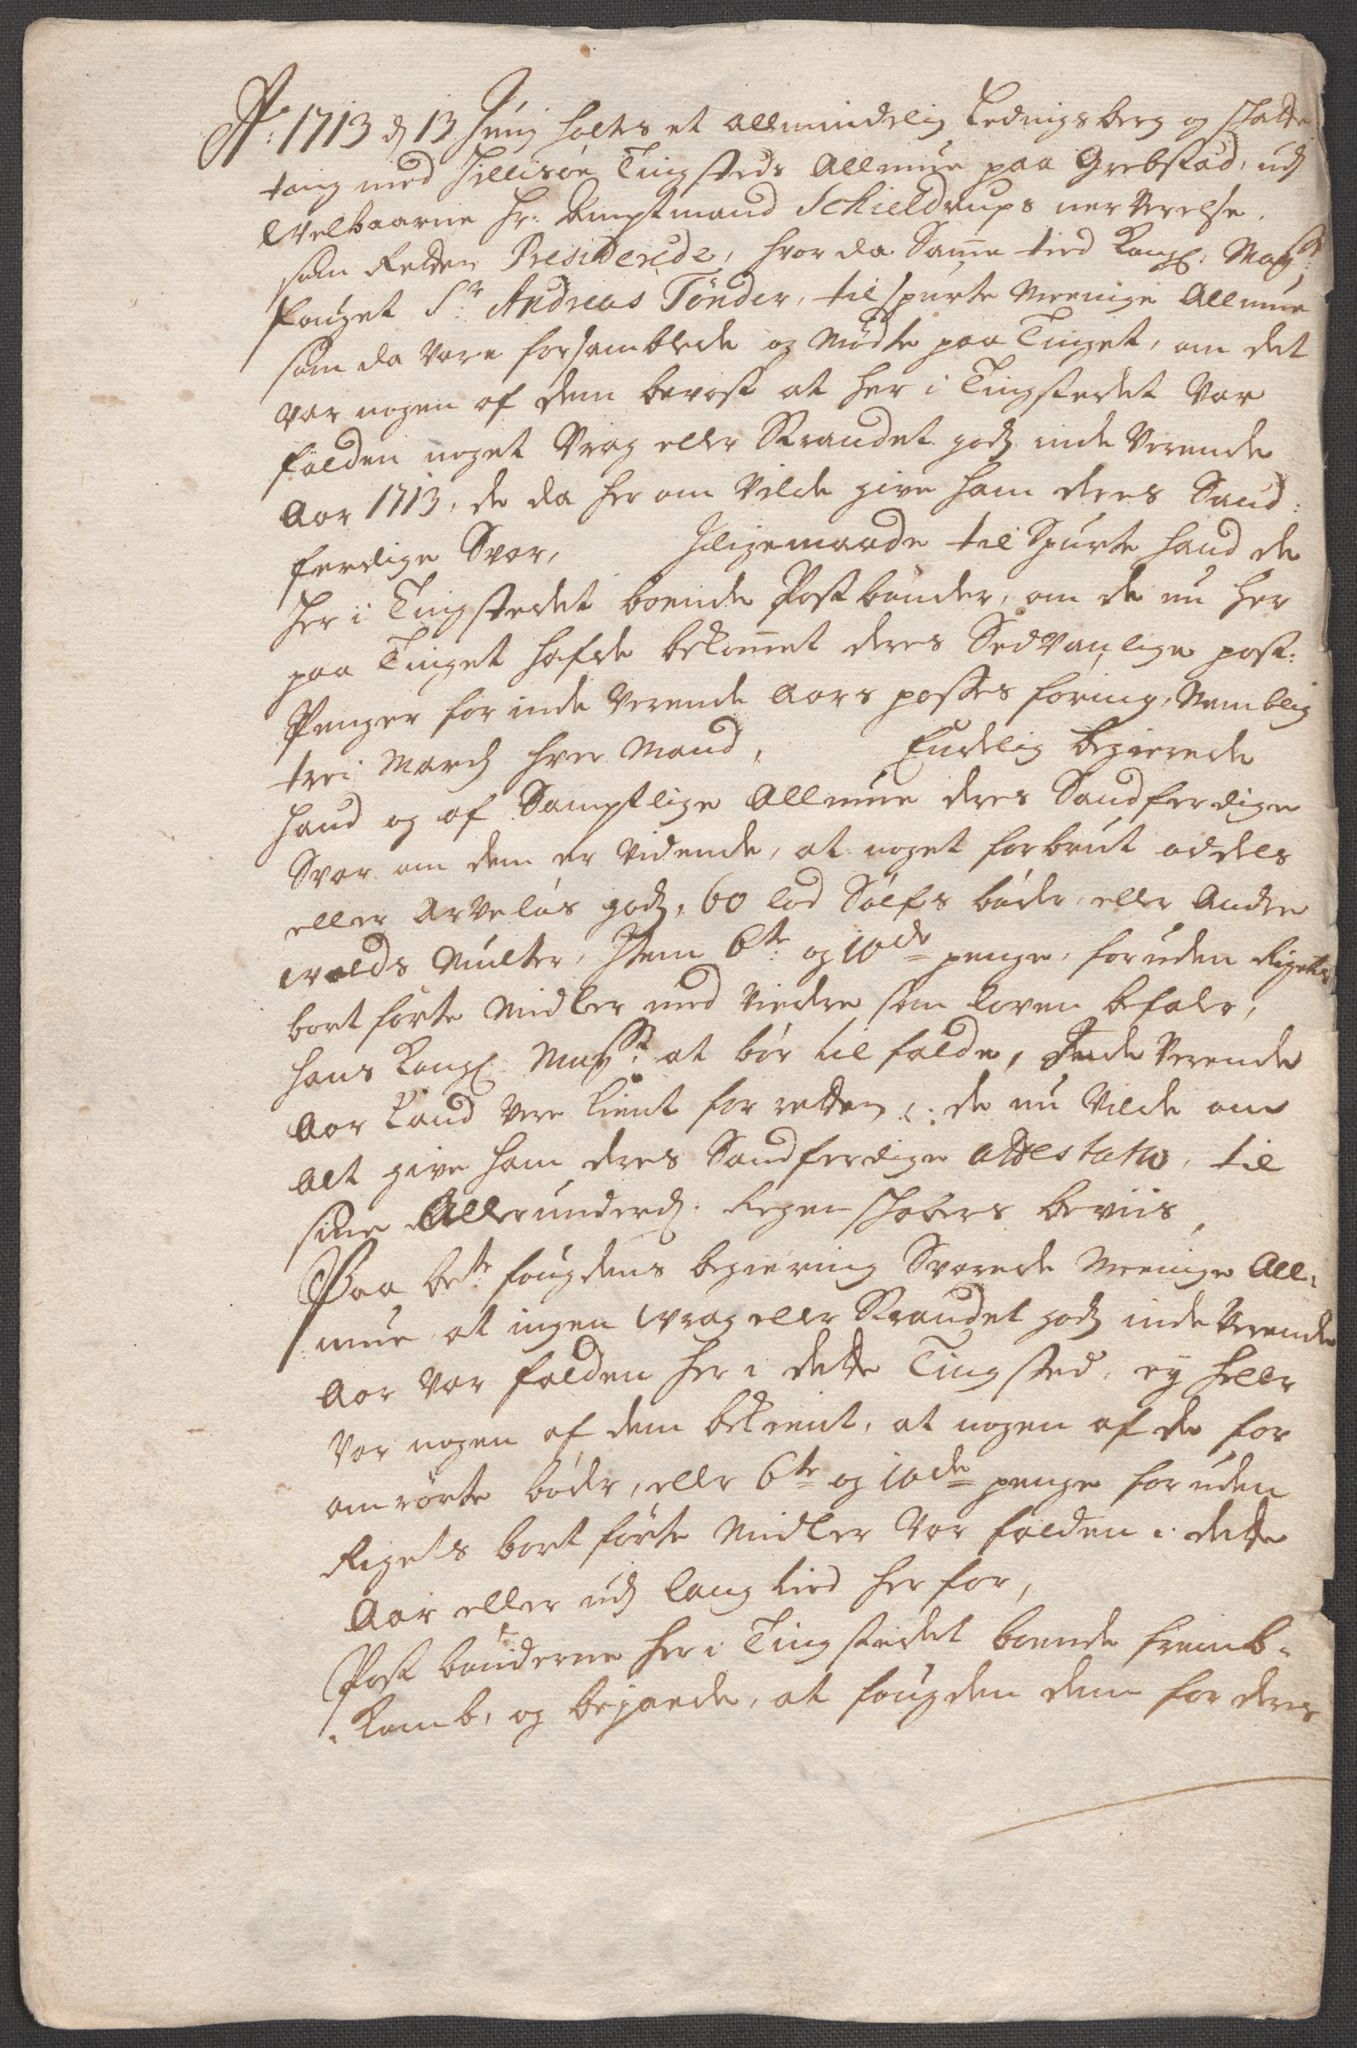 Ao: 1713 d 13 Junj holtes et allmindelig Ledingsberg og schatte
ting med Jellisøe Tingsteds Allmue paa Grebstad, udj
Welbaarne Hr: Amptmand Schieldrups ner Verelse,
som Retten Presiderede, hvor da Samme tied Kongl: Mayst:
Fouget Sr Andreas Tønder, tilspurte Meenige Allmue
som da Vare forsamblede og Mødte paa Tinget, om det
Var nogen af dem bevost at her i Tingstedet Var
falden noget Vrag eller Strandet godz inde Verende
Aar 1713, de da her om Vilde give ham deres Sand:
ferdige Svar, Jligemaade til Spurte hand de
her i Tingstedet boende Postbønder, om de nu her
paa Tinget hafde bekommet deres Sedvanlige post:
Penger for inde Verende Aars posses føring, Nemblig
trei March hver Mand, Endelig begierede
hand og af Samptlige Allmue deres Sandferdige
Svar om dem er Vidende, at noget forbrut oddels
eller Arveløs godz, 60 lod Sølfs bøder, eller Andre
Wolds Mulcter, Jtem 6te og 10de penge, foruden Rigets
bortførte Midler med Viedre som loven befaler,
hans Kongl: Mayst: at bør tilfalde, Jnde Verende
Aar kand Vere kient for retten, de nu Vilde om
alt give ham deres Sandferdige attestation, til
sine Allerunderd: Regenschabers beviis,
Paa bete fougdens begiering Svarede Meenige All:
mue, at ingen Wrag eller Strandet godz inde Verende
Aar Var falden her i dette Tingsted, ey heller
Var nogen af dem bekient, at nogen af de for
omrørte bøder, eller 6te og 10de penge foruden
Rigets bortførte Midler Var falden i dette
Aar eller udj lang tied her for,
Post bønderne her i Tingstedet boende fremb-
komb, og bejaede, at fougden dem for deres